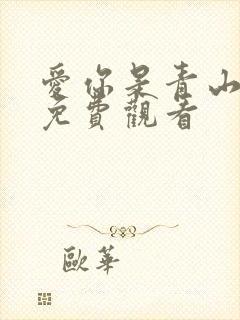 愛你是青山
免費觀看
歐華